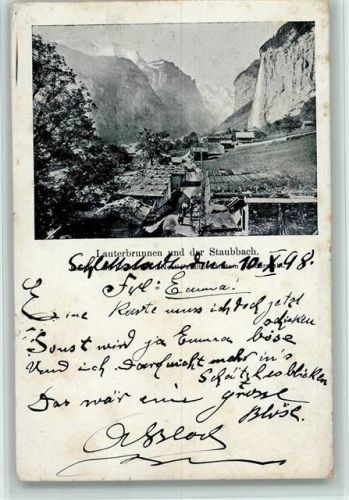 Lauterbrunnen und der Staubbach.
Schlettstadt, den 10.X.98.
Frl: Emma!
Eine Karte muss ich doch jetzt
schicken
Sonst wird ja Emma böse
Und ich darf nicht mehr in's
Schätzles blicken
Das wär eine grosse
Blöse.
A Bloch